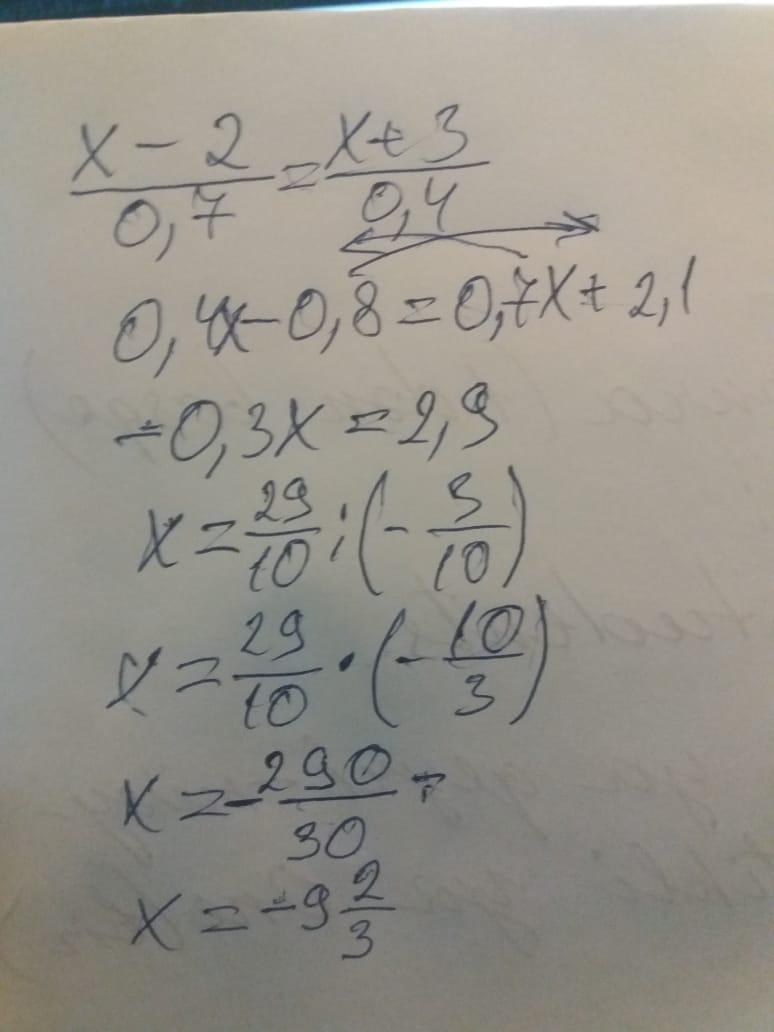 x - 2 / 0,7 = x + 3 / 0,4
0,4x - 0,8 = 0,7x + 2,1
-0,3x = 2,9
x = 29/10 : (- 3/10)
x = 29/10 · (- 10/3)
x = - 290/30
x = -9 2/3